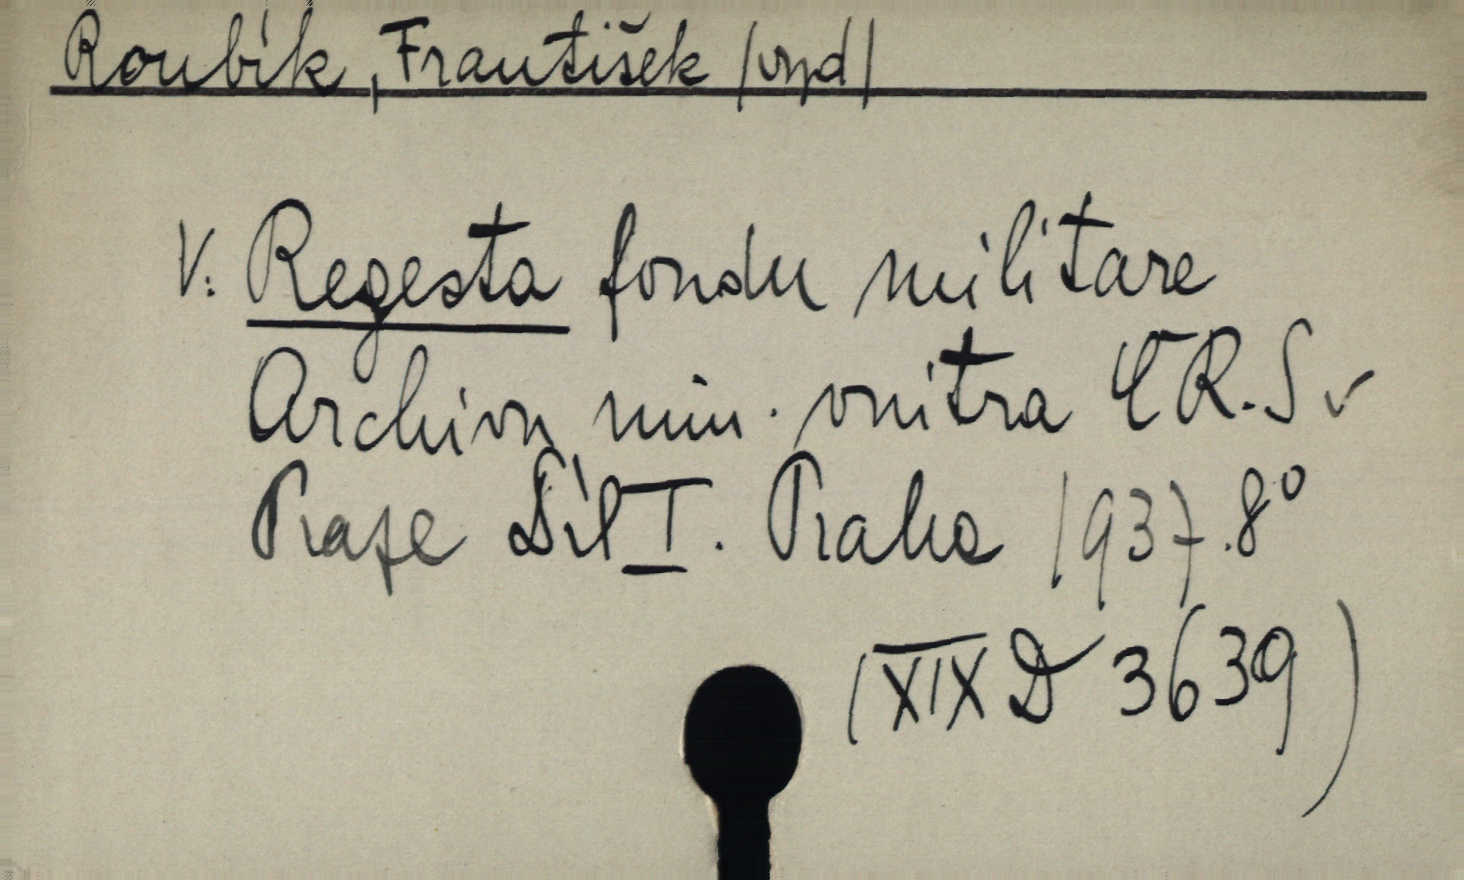 Roubík, František /vyd/
V: Regesta fondu militare
Archivu min. vnitra ČR.S v
Praze Díl I. Praha 1937.8°
(XIX D 3639)